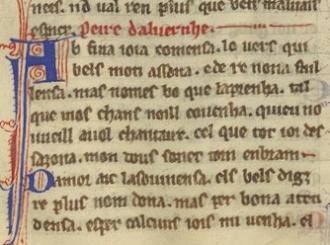 nens. ni val ren plus que bels maluais
esper. Peire daluernhe.
Ab fina ioia comensa. lo uers qui
bels motz assona. e de re noi a faill
lensa. mas nomes bo que laprenha. tal
que mos chans noill couenha. quieu no
uueill auol chantaire. cel que tot
mon dous sonet
Damor ai la souinensa. els bels digz
re plus nom dona. mas per bona aten
densa. esper calcuns iois mi uenha. el